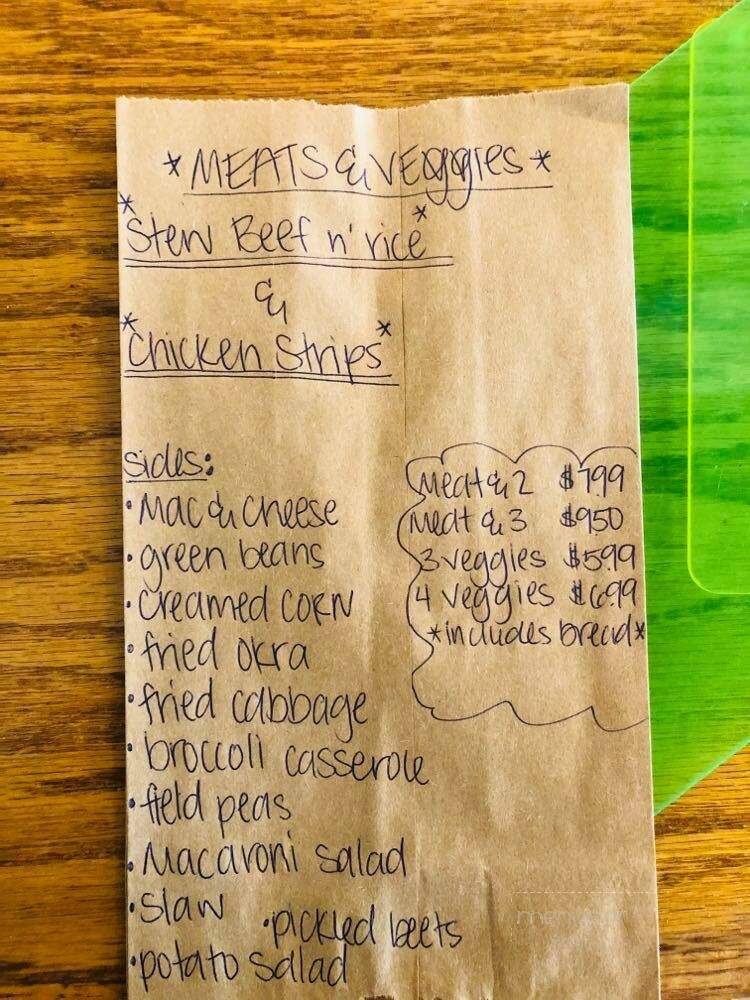 *MEATS & VEggies*
*Stew Beef n' rice*
&
*Chicken Strips*
sides:
•Mac & Cheese
•green beans
•creamed corn
•fried okra
•fried cabbage
•broccoli casserole
•field peas
•Macaroni salad
•slaw
•pickled beets
•potato salad
Meat & 2 $799
Meat & 3 $950
3 veggies $599
4 veggies $699
*includes bread*